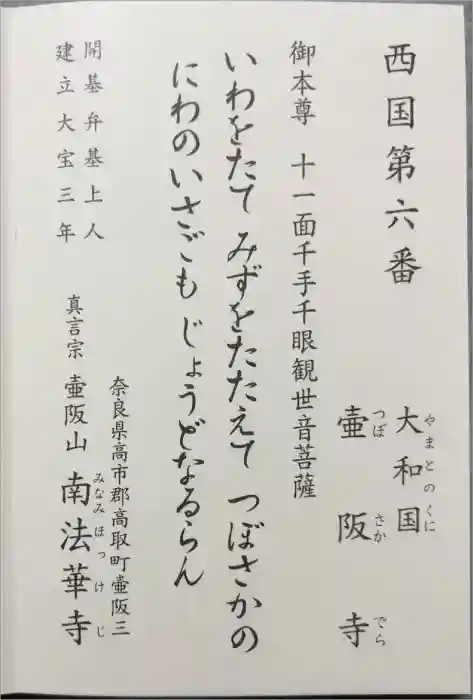 西国第六番
やまとのくに
大和国
つぼさかでら
壷阪寺
御本尊 十一面千手千眼観世音菩薩
いわをたて みずをたたえて つぼさかの
にわのいさごも じょうどなるらん
開基弁基上人
建立大宝三年
奈良県高市郡高取町壷阪三
真言宗 壷阪山 南法華寺
みなみほっけじ